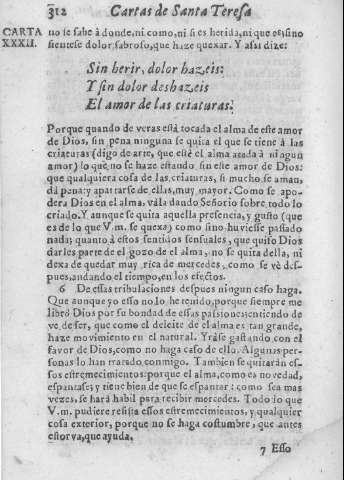 312 Cartas de Santa Teresa
CARTA XXXII.
no se sabe à donde, ni como, ni si es herida, ni que es: sino
sientese dolor sabroso, que haze quexar. Y assi dize:
Sin herir, dolor hazeis:
Y sin dolor deshazeis
El amor de las criaturas.
Porque quando de veras està tocada el alma de este amor
de Dios, sin pena ninguna se quita el que se tiene à las
criaturas (digo de arte, que estè el alma atada à ningun
amor) lo que no se haze estando sin este amor de Dios:
que qualquiera cosa de las criaturas, si mucho se aman,
dà pena: y apartarse de ellas, muy mayor. Como se apo-
dera Dios en el alma, vàla dando Señorio sobre todo lo
criado. Y aunque se quita aquella presencia, y gusto (que
es de lo que V.m. se quexa) como sino huviesse passado
nada; quanto à estos sentidos sensuales, que quiso Dios
darles parte de el gozo de el alma, no se quita della, ni
dexa de quedar muy rica de mercedes, como se vè des-
pues, andando el tiempo, en los efectos.
6 De essas tribulaciones despues ningun caso haga.
Que aunque yo esso no lo he tenido, porque siempre me
librò Dios por su bondad de essas passiones: entiendo de
ve de ser, que como el deleite de el alma es tan grande,
haze movimiento en el natural. Yràse gastando con el
favor de Dios, como no haga caso de ello. Algunas per-
sonas lo han tratado conmigo. Tambien se quitaràn es-
sos estremecimientos: porque el alma, como es novedad,
espantase; y tiene bien de que se espantar: como sea mas
vezes, se harà habil para recibir mercedes. Todo lo que
V.m. pudiere resista essos estremecimientos, y qualquier
cosa exterior, porque no se haga costumbre, que antes
estorva, que ayuda.
7 Esso